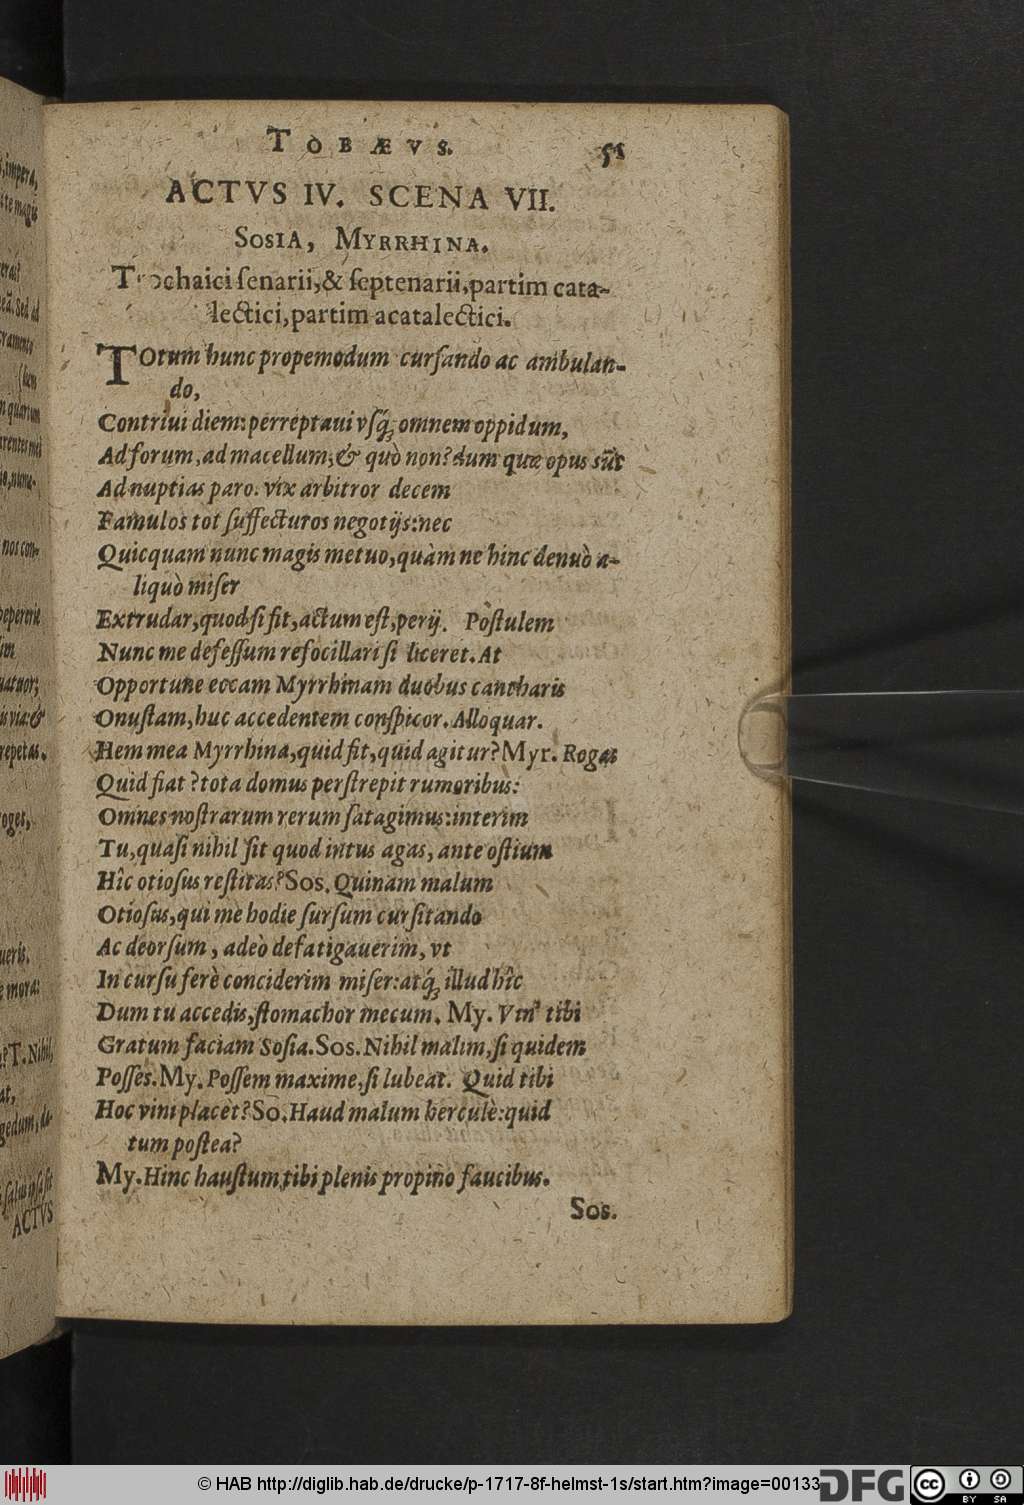 TOBÆVS.
51
ACTVS IV. SCENA VII.
SOSIA, MYRRHINA.
Trochaici ſenarii,& ſeptenarii,partim cata-
lectici,partim acatalectici.
TOtum hunc propemodum curſando ac ambulan-
do,
Contriui diem:perreptaui vſq́; omnem oppidum,
Ad forum,ad macellum,& quò non? dum quæ opus sũt
Ad nuptias paro. vix arbitror decem
Famulos tot ſuffecturos negotijs:nec
Quicquam nunc magis metuo,quàm ne hinc denuò a-
liquò miſer
Extrudar,quod ſi fit,actum eſt,perij. Poſtulem
Nunc me defeſſum refocillari ſi liceret. At
Opportune eccam Myrrhinam duobus cantharis
Onuſtam,huc accedentem conſpicor. Alloquar.
Hem mea Myrrhina,quid fit,quid agitur? Myr. Rogas
Quid fiat? tota domus perſtrepit rumoribus:
Omnes noſtrarum rerum ſatagimus:interim
Tu,quaſi nihil ſit quod intus agas, ante oſtium
Hîc otioſus reſtitas? Sos. Quinam malum
Otioſus,qui me hodie ſurſum curſitando
Ac deorſum, adeò defatigauerim, vt
In curſu ferè conciderim miſer:atq́; illud hîc
Dum tu accedis,ſtomachor mecum. My. Vin' tibi
Gratum faciam Soſia. Sos. Nihil malim,ſi quidem
Poſſes. My. Poſſem maxime,ſi lubeat. Quid tibi
Hoc vini placet? So. Haud malum herculè:quid
tum poſtea?
My. Hinc hauſtum tibi plenis propino faucibus.
Sos.
s,impera,
ACTVS
© HAB http://diglib.hab.de/drucke/p-1717-8f-helmst-1s/start.htm?image=00133
DFG
cc BY SA